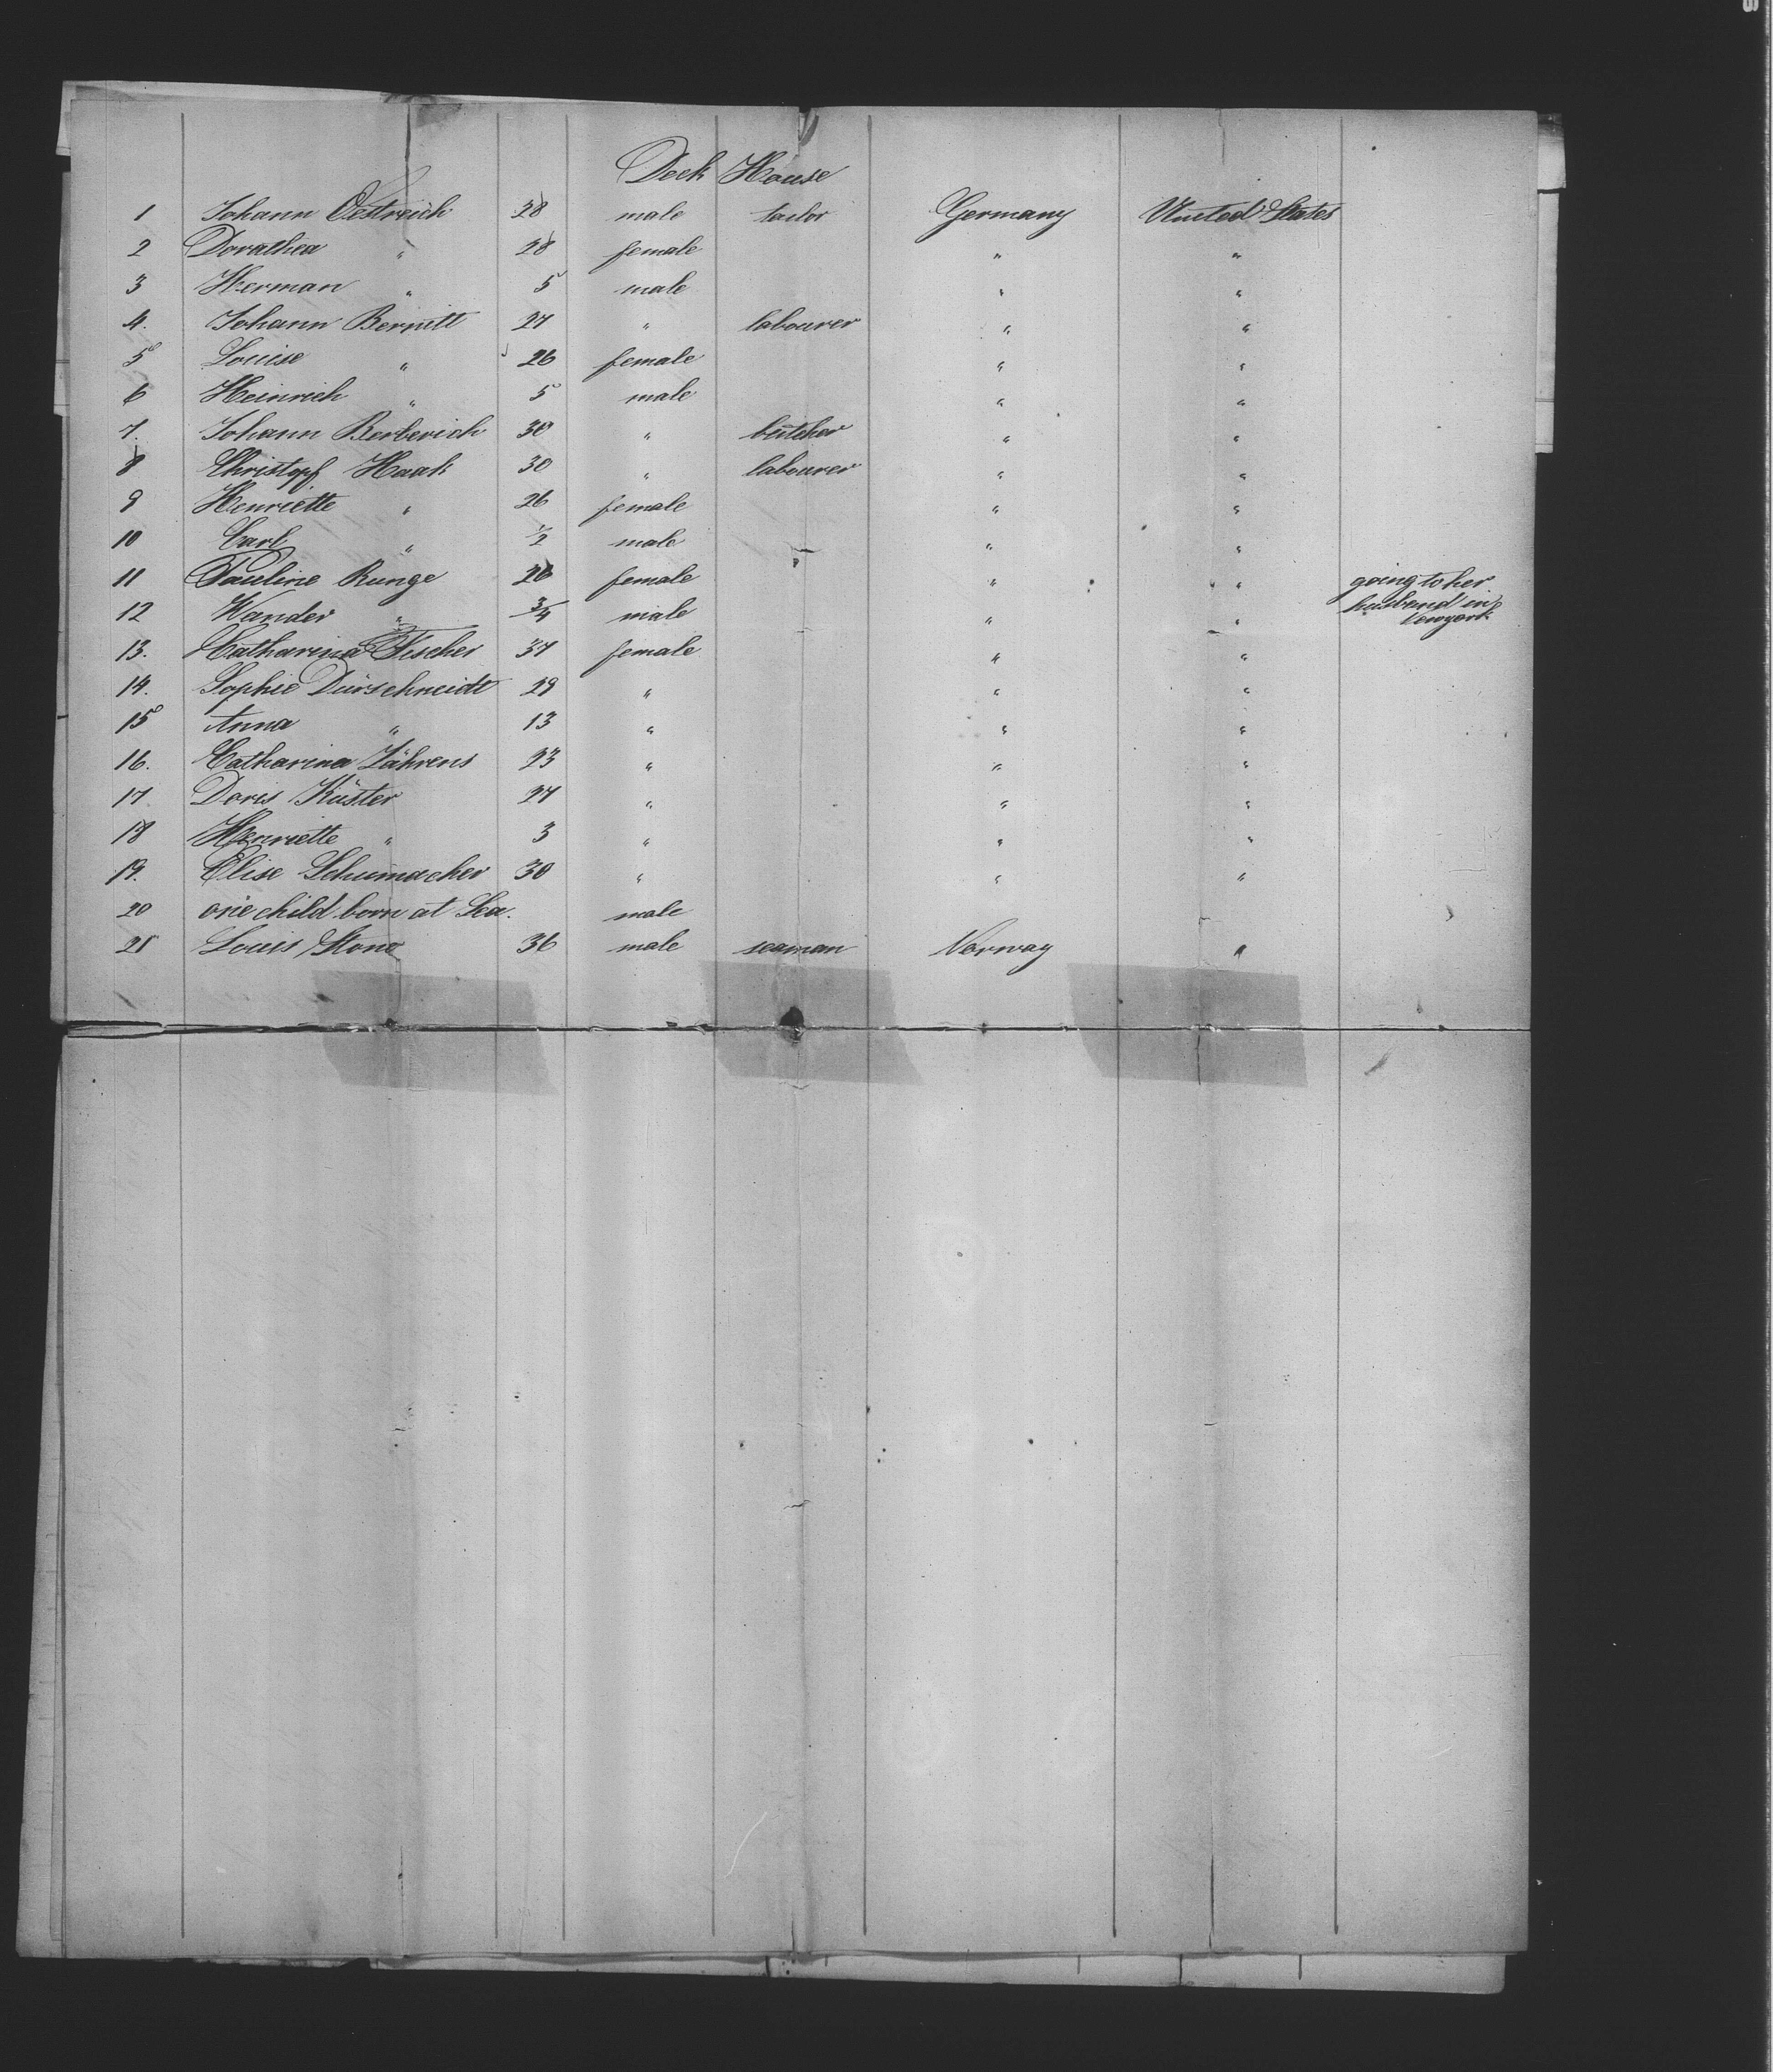 Deck House
1 Johann Oestreich 38 male tailor Germany United States
2 Dorathea " 28 female " "
3 Herman " 5 male " "
4. Johann Bernitt 27 " labourer " "
5 Louise " 26 female " "
6 Heinrich " 5 male " "
7. Johann Berberich 30 " butcher " "
8 Christopf Haak 30 " labourer " "
9 Henriette " 26 female " "
10 Carl " 1/2 male " "
11 Pauline Runge 26 female " " going to her
12 Wander " 3/4 male " " husband in
Newyork
13. Catharina Fischer 37 female " "
14. Sophie Dürschneidt 29 " " "
15 Anna " 13 " " "
16. Catharina Jährens 23 " " "
17 Doris Küster 27 " " "
18 Henriette " 3 " " "
19. Elise Schumacher 30 " " "
20 one child born at Sea. male
21 Louis Stone 36 male seaman Norway "